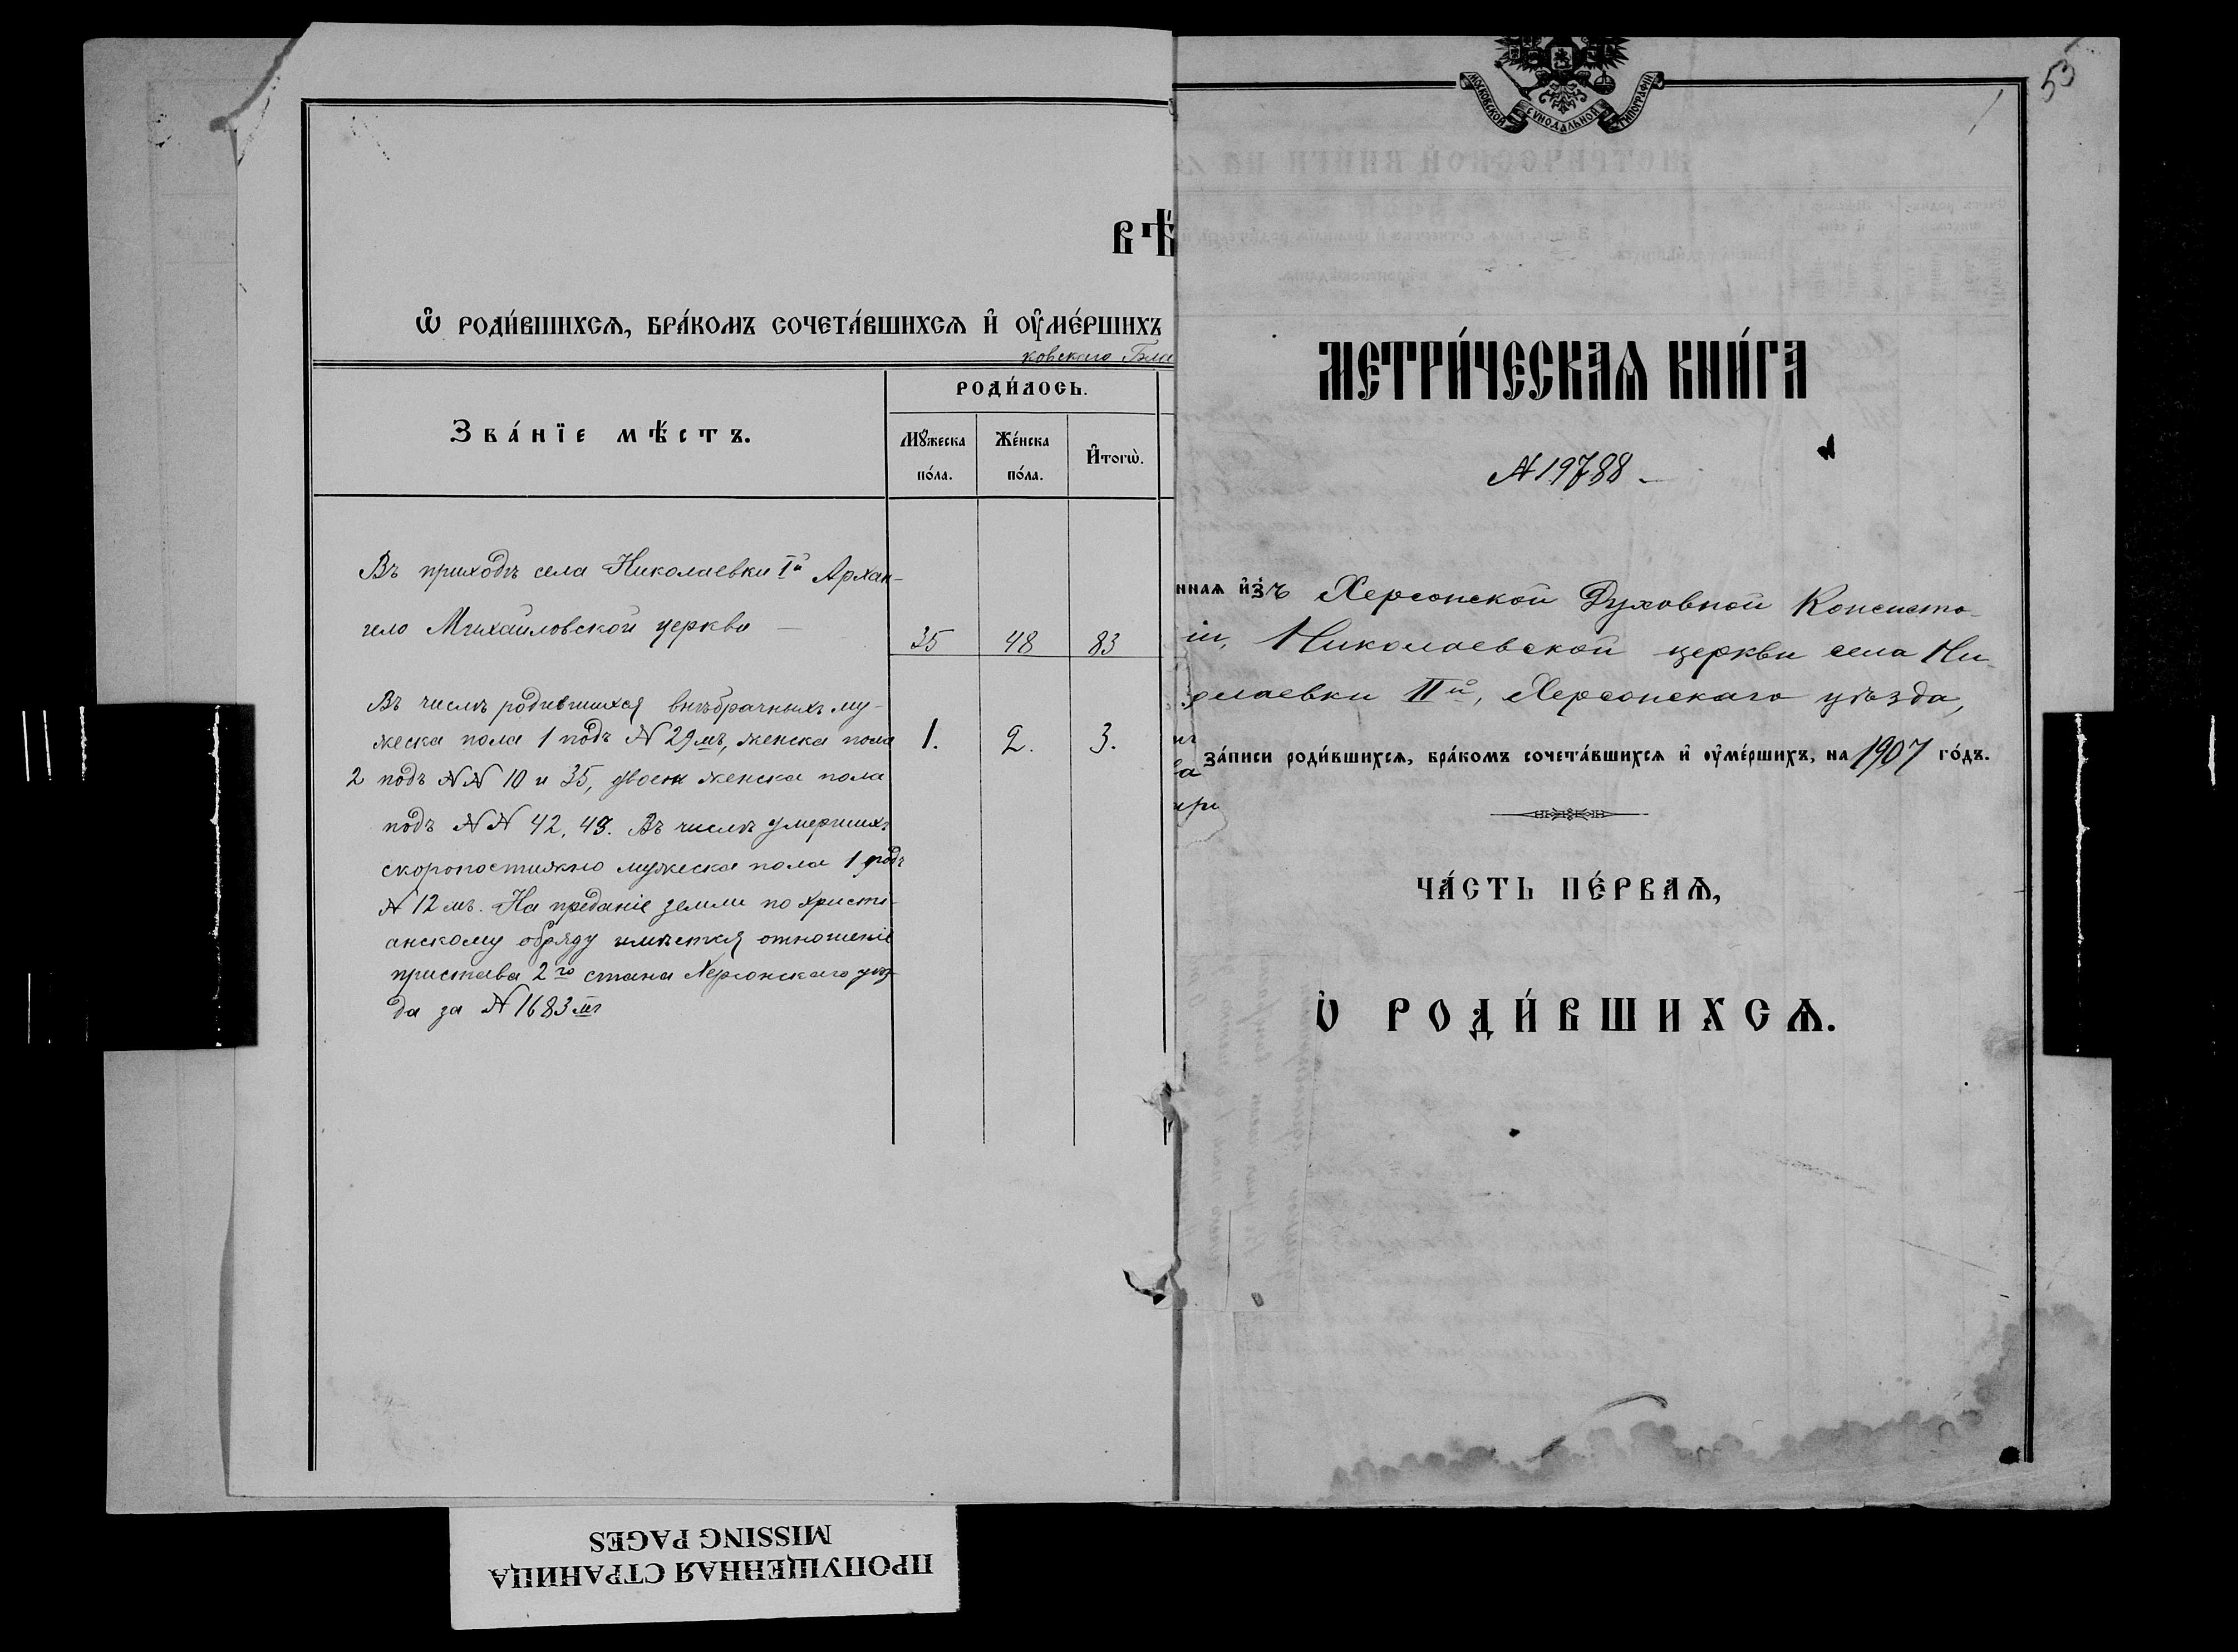 вѣ́
Ѡ҆ роди́вшихсѧ, бра́комъ сочета́вшихсѧ и҆ ᲂу҆ме́ршихъ
ковскаго Бла
Зва́нїе мѣ́стъ.
роди́лось.
Мꙋ́жеска по́ла.
Же́нска по́ла.
И҆тогѡ̀.
Въ приходѣ села Николаевки Iй Архан-
гело Михайловской церкви — 35 48 83
Въ числѣ родившихся внѣбрачныхъ му-
жеска пола 1 подъ № 29мъ, женска пола 1. 2. 3.
2 подъ №№ 10 и 35, двоен женска пола
подъ №№ 42, 43. Въ числѣ умершихъ
скоропостижно мужеска пола 1 подъ
№ 12мъ. На преданіе земли по христі-
анскому обряду имѣется отношеніе
пристава 2го стана Херсонскаго уѣз-
да за № 1683мъ
53
МОСКОВСКОЙ СѴНОДАЛЬНОЙ ТИПОГРАФІИ
МЕТРИ́ЧЕСКАѦ КНИ́ГА
№ 19788
ннаѧ и҆зъ Херсонской Духовной Консисто-
іи, Николаевской церкви села Ни-
олаевки IIй, Херсонскаго уѣзда,
за́писи роди́вшихсѧ, бра́комъ сочета́вшихсѧ и҆ ᲂу҆ме́ршихъ, на 1907 го́дъ.
ЧА́СТЬ ПЕ́РВАѦ,
Ѡ҆ РОДИ́ВШИХСѦ.
MISSING PAGES
ПРОПУЩЕННАЯ СТРАНИЦА